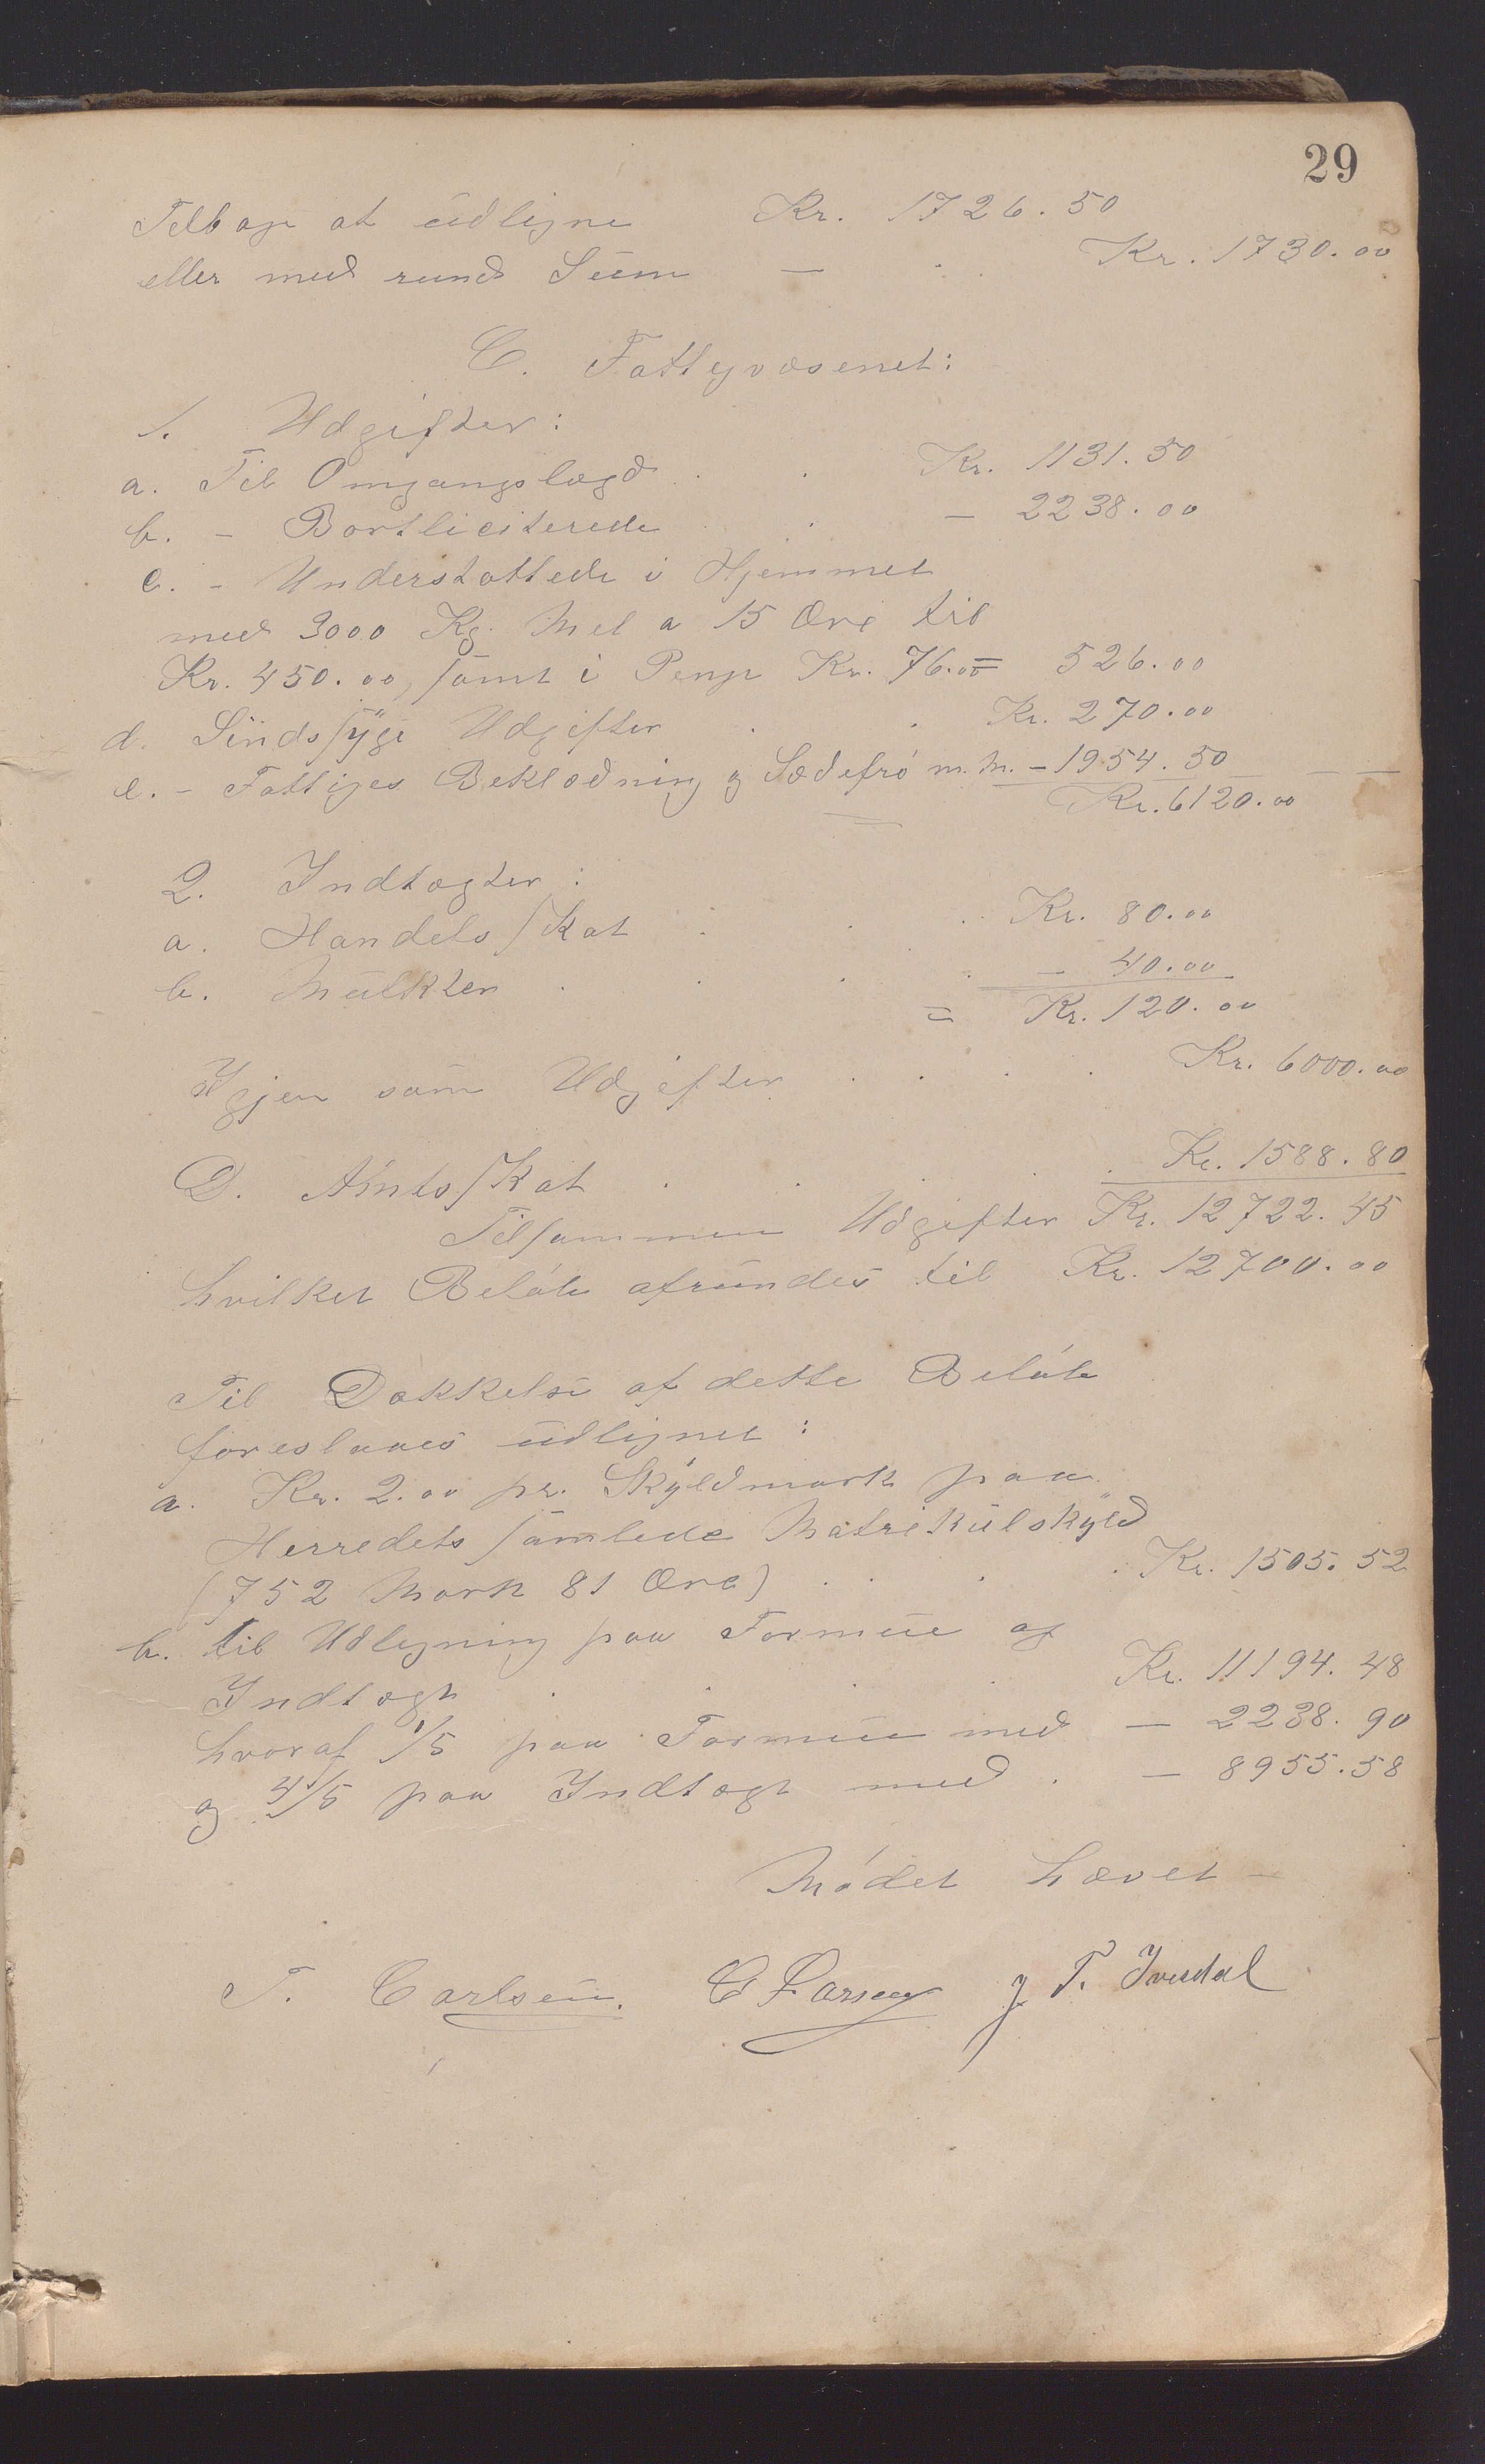 29
Tilbage at udligne Kr. 1726.50
eller med rund Sum — Kr. 1730.00
C. Fattigvæsenet:
1. Udgifter:
a. Til Omgangslægd . . Kr. 1131.50
b. - Bortliciterede . . — 2238.00
c. - Understøttede i Hjemmet
med 3000 Kg. Mel a 15 Øre til
Kr. 450.00, samt i Penge Kr. 76.00 = 526.00
d. Sindssyge Udgifter . . Kr. 270.00
e. - Fattiges Beklædning og Sædefrø m.m. - 1954.50
Kr. 6120.00
2. Indtægter:
a. Handelsskat . . . Kr. 80.00
b. Mulkter . . . . — 40.00
= Kr. 120.00
Igjen som Udgifter . . . Kr. 6000.00
D. Amtsskat . . . . Kr. 1588.80
Tilsammen Udgifter Kr. 12722.45
hvilket Beløb afrundes til Kr. 12700.00
Til Dækkelse af dette Beløb
foreslaaes udlignet:
a. Kr. 2.00 pr. Skyldmark paa
Herredets samlede Matrikulskyld
(752 Mark 81 Øre) . . . Kr. 1505.52
b. til Udligning paa Formue og
Indtægt . . . . Kr. 11194.48
hvoraf 1/5 paa Formue med — 2238.90
og 4/5 paa Indtægt med . — 8955.58
Mødet hævet —
T. Carlsen. C Larsen J. T.